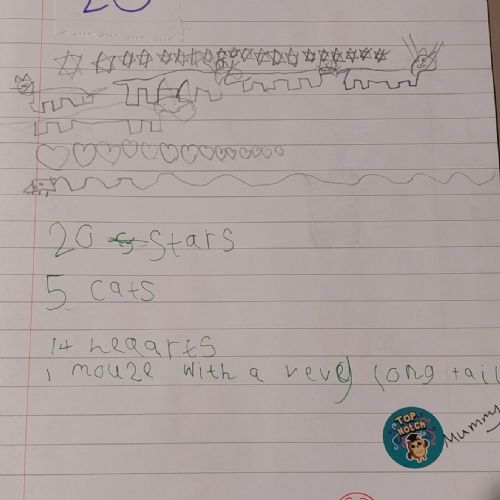 20
20 Stars
5 cats
14 hegarts
1 mouze with a very long tail
TOP
NOTCH
Mummy